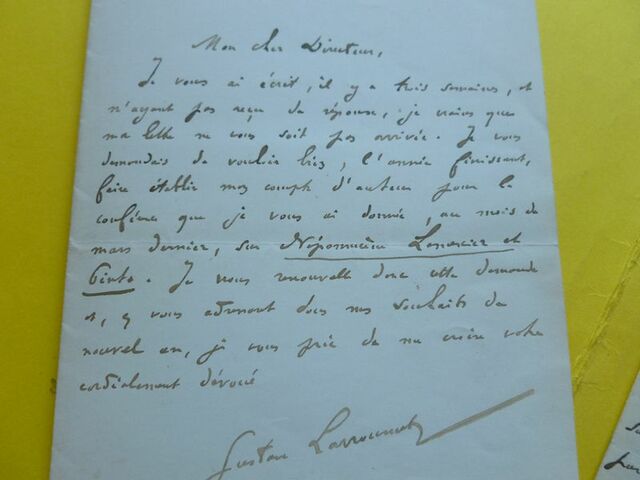 Mon cher Directeur,
Je vous ai écrit, il y a trois semaines, et
n'ayant pas reçu de réponse, je crains que
ma lettre ne vous soit pas arrivée. Je vous
demandais de vouloir bien, l'année finissant,
faire établir mon compte d'auteur pour la
conférence que je vous ai donnée, au mois de
mars dernier, sur Népomucène Lemercier et
Pinto. Je vous renouvelle donc cette demande
et, y vous adressant mes souhaits de
nouvel an, je vous prie de me croire votre
cordialement dévoué
Gustave Larroumet